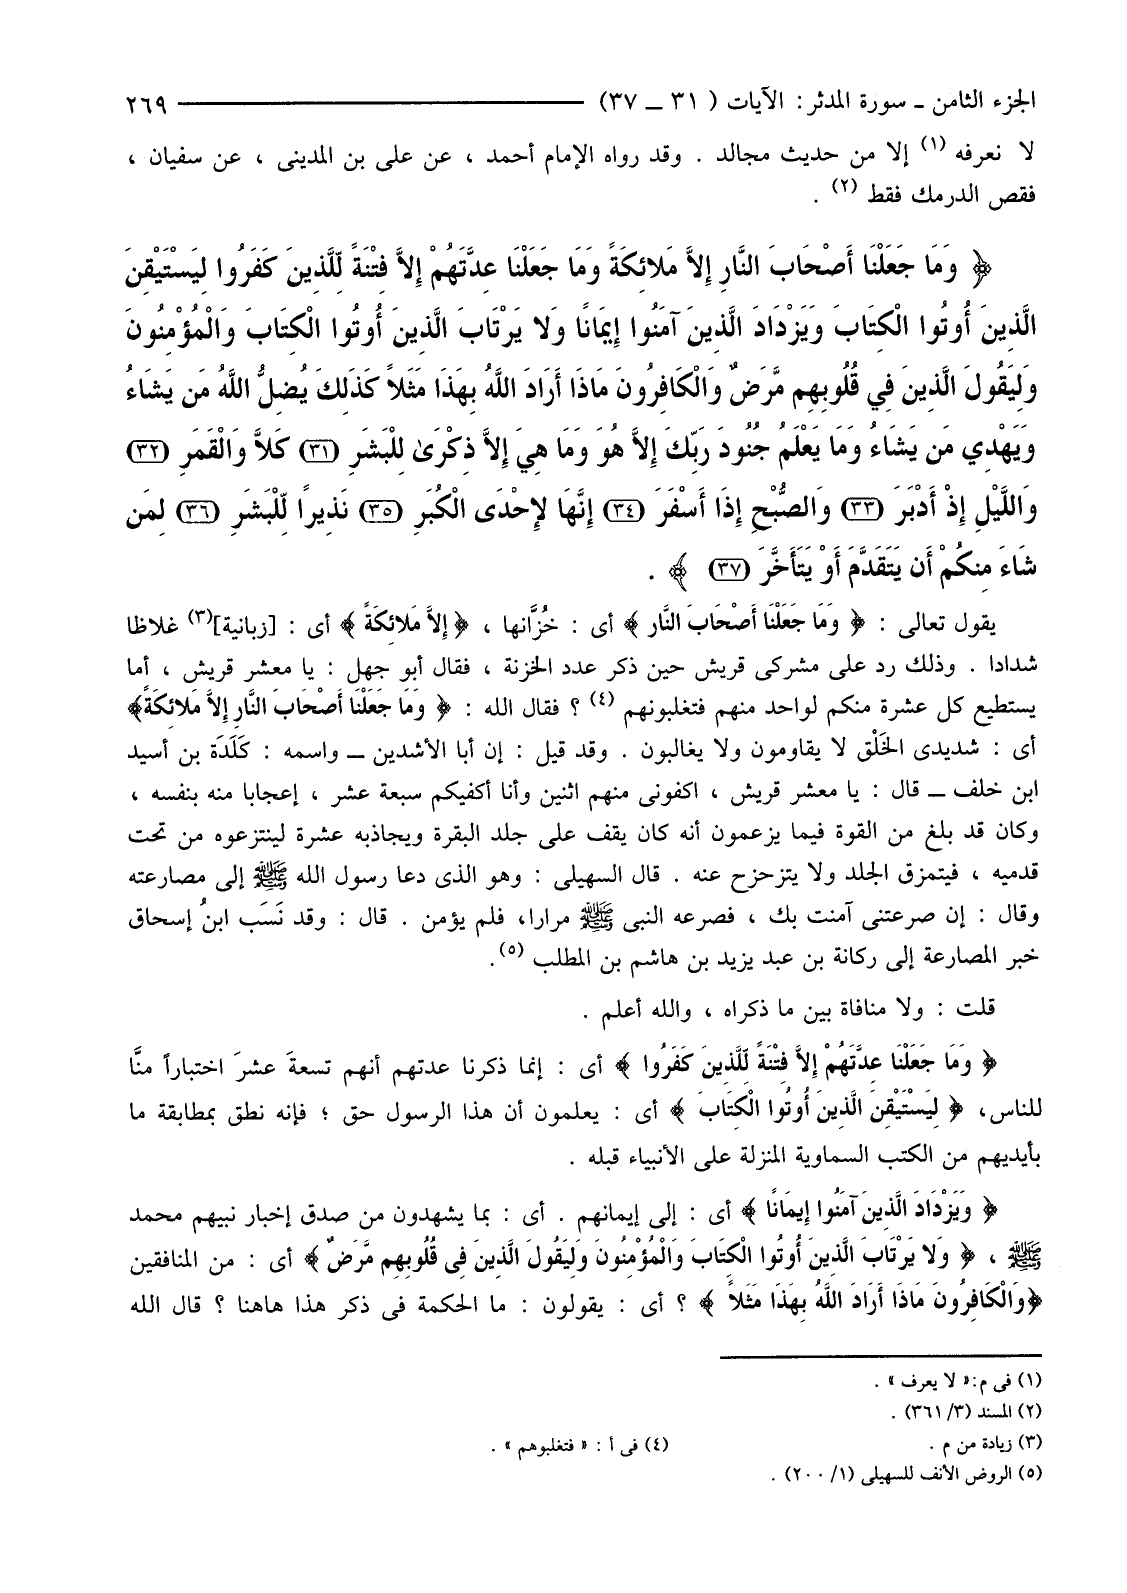 الجزء الثامن ـ سورة المدثر : الآيات ( ٣١ ــ ٣٧) ٢٦٩
لا نعرفه (١) إلا من حديث مجالد . وقد رواه الإمام أحمد ، عن على بن المدينى ، عن سفيان ،
فقص الدرمك فقط (٢) .
﴿ وَمَا جَعَلْنَا أَصْحَابَ النَّارِ إِلاَّ مَلائِكَةً وَمَا جَعَلْنَا عِدَّتَهُمْ إِلاَّ فِتْنَةً لِّلَّذِينَ كَفَرُوا لِيَسْتَيْقِنَ
الَّذِينَ أُوتُوا الْكِتَابَ وَيَزْدَادَ الَّذِينَ آمَنُوا إِيمَانًا وَلا يَرْتَابَ الَّذِينَ أُوتُوا الْكِتَابَ وَالْمُؤْمِنُونَ
وَلِيَقُولَ الَّذِينَ فِي قُلُوبِهِم مَّرَضٌ وَالْكَافِرُونَ مَاذَا أَرَادَ اللَّهُ بِهَذَا مَثَلاً كَذَلِكَ يُضِلُّ اللَّهُ مَن يَشَاءُ
وَيَهْدِي مَن يَشَاءُ وَمَا يَعْلَمُ جُنُودَ رَبِّكَ إِلاَّ هُوَ وَمَا هِيَ إِلاَّ ذِكْرَىٰ لِلْبَشَرِ (٣١) كَلاَّ وَالْقَمَرِ (٣٢)
وَاللَّيْلِ إِذْ أَدْبَرَ (٣٣) وَالصُّبْحِ إِذَا أَسْفَرَ (٣٤) إِنَّهَا لإِحْدَى الْكُبَرِ (٣٥) نَذِيرًا لِّلْبَشَرِ (٣٦) لِمَن
شَاءَ مِنكُمْ أَن يَتَقَدَّمَ أَوْ يَتَأَخَّرَ (٣٧) ﴾ .
يقول تعالى : ﴿ وَمَا جَعَلْنَا أَصْحَابَ النَّارِ ﴾ أى : خُزَّانها ، ﴿ إِلاَّ مَلائِكَةً ﴾ أى : [زبانية](٣) غلاظا
شدادا . وذلك رد على مشركى قريش حين ذكر عدد الخزنة ، فقال أبو جهل : يا معشر قريش ، أما
يستطيع كل عشرة منكم لواحد منهم فتغلبونهم (٤) ؟ فقال الله : ﴿ وَمَا جَعَلْنَا أَصْحَابَ النَّارِ إِلاَّ مَلائِكَةً﴾
أى : شديدى الخَلْق لا يقاومون ولا يغالبون . وقد قيل : إن أبا الأشدين ــ واسمه : كَلَدَة بن أسيد
ابن خلف ــ قال : يا معشر قريش ، اكفونى منهم اثنين وأنا أكفيكم سبعة عشر ، إعجابا منه بنفسه ،
وكان قد بلغ من القوة فيما يزعمون أنه كان يقف على جلد البقرة ويجاذبه عشرة لينتزعوه من تحت
قدميه ، فيتمزق الجلد ولا يتزحزح عنه . قال السهيلى : وهو الذى دعا رسول الله ﷺ إلى مصارعته
وقال : إن صرعتنى آمنت بك ، فصرعه النبى ﷺ مرارا، فلم يؤمن . قال : وقد نَسَب ابنُ إسحاق
خبر المصارعة إلى ركانة بن عبد يزيد بن هاشم بن المطلب (٥).
قلت : ولا منافاة بين ما ذكراه ، والله أعلم .
﴿ وَمَا جَعَلْنَا عِدَّتَهُمْ إِلاَّ فِتْنَةً لِّلَّذِينَ كَفَرُوا ﴾ أى : إنما ذكرنا عدتهم أنهم تسعةَ عشرَ اختباراً منَّا
للناس، ﴿ لِيَسْتَيْقِنَ الَّذِينَ أُوتُوا الْكِتَابَ ﴾ أى : يعلمون أن هذا الرسول حق ؛ فإنه نطق بمطابقة ما
بأيديهم من الكتب السماوية المنزلة على الأنبياء قبله .
﴿ وَيَزْدَادَ الَّذِينَ آمَنُوا إِيمَانًا ﴾ أى : إلى إيمانهم . أى : بما يشهدون من صدق إخبار نبيهم محمد
ﷺ ، ﴿ وَلا يَرْتَابَ الَّذِينَ أُوتُوا الْكِتَابَ وَالْمُؤْمِنُونَ وَلِيَقُولَ الَّذِينَ فِى قُلُوبِهِم مَّرَضٌ ﴾ أى : من المنافقين
﴿وَالْكَافِرُونَ مَاذَا أَرَادَ اللَّهُ بِهَذَا مَثَلاً ﴾ ؟ أى : يقولون : ما الحكمة فى ذكر هذا هاهنا ؟ قال الله
(١) فى م:« لا يعرف » .
(٢) المسند (٣/ ٣٦١) .
(٣) زيادة من م . (٤) فى أ : « فتغلبوهم » .
(٥) الروض الأنف للسهيلى (١/ ٢٠٠) .